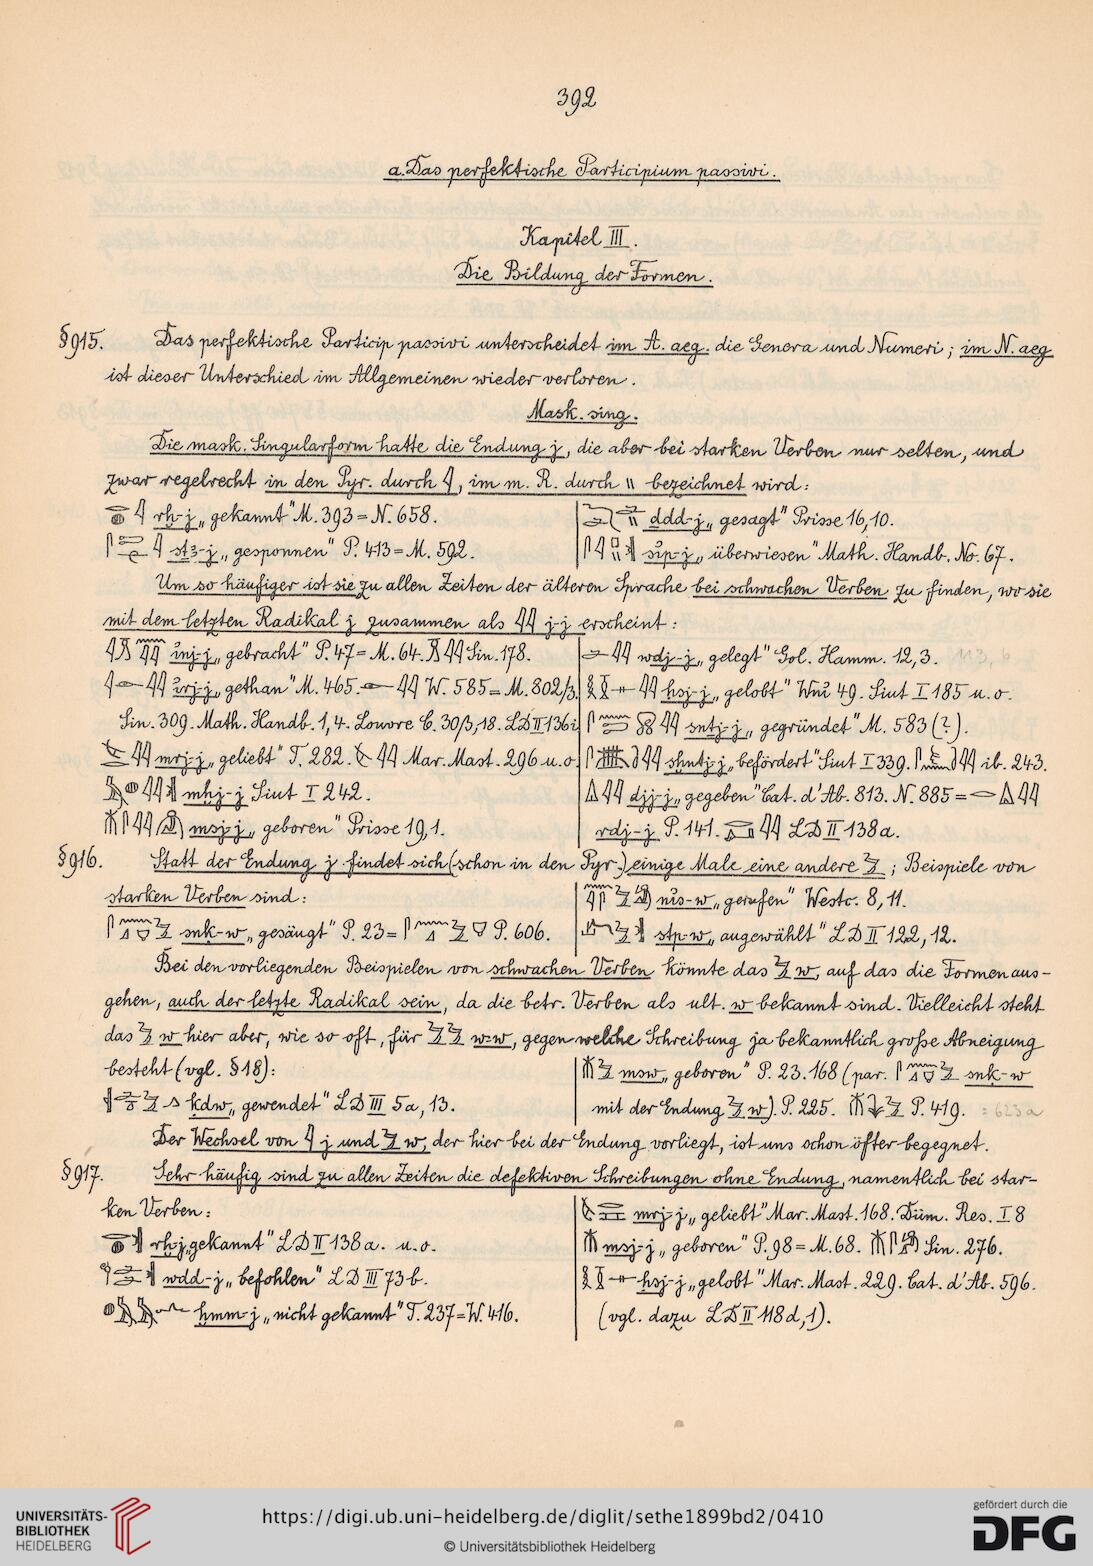 392
a. Das perfektische Participium passivi.
Kapitel III.
Die Bildung der Formen.
§915. Das perfektische Particip passivi unterscheidet im A. aeg. die Genera und Numeri; im N. aeg
ist dieser Unterschied im Allgemeinen wieder verloren.
Mask. sing.
Die mask. Singularform hatte die Endung j, die aber bei starken Verben nur selten, und
zwar regelrecht in den Pyr. durch 𓇋, im m. R. durch \\ bezeichnet wird:
rḫ-j „gekannt" M. 393 = N. 658.
stꜣ-j „gesponnen" P. 413 = M. 592.
ddd-j „gesagt" Prisse 16,10.
„überwiesen" Math. Handb. No. 67.
Um so häufiger ist sie zu allen Zeiten der älteren Sprache bei schwachen Verben zu finden, wo sie
mit dem letzten Radikal j zusammen als 𓇋𓇋 j-j erscheint:
„gebracht" P. 47 = M. 64. Sin. 178.
„gethan" M. 465. W. 585 = M. 802/3.
Sin. 309. Math. Handb. 1,4. Louvre C. 30/3,18. LD II 136i
mrj-j „geliebt" T. 282. Mar. Mast. 296 u. o.
mḥj-j Siut I 242.
msj-j „geboren" Prisse 19,1.
wdj-j „gelegt" Gol. Hamm. 12,3.
ḥsj-j „gelobt" Wni 49. Siut I 185 u. o.
sntj-j „gegründet" M. 583 (?).
sḫntj-j „befördert" Siut I 339. ib. 243.
djj-j „gegeben" Cat. d'Ab. 813. N. 885 =
rdj-j P. 141. LD II 138a.
§916. Statt der Endung j findet sich (schon in den Pyr.) einige Male eine andere 𓅱; Beispiele von
starken Verben sind:
snḳ-w „gesäugt" P. 23 = P. 606.
nis-w „gerufen" Westc. 8,11.
stp-w „augewählt" LD II 122,12.
Bei den vorliegenden Beispielen von schwachen Verben könnte das 𓅱 w, auf das die Formen aus-
gehen, auch der letzte Radikal sein, da die betr. Verben als ult. w bekannt sind. Vielleicht steht
das 𓅱 w hier aber, wie so oft, für 𓅱𓅱 w-w, gegen welche Schreibung ja bekanntlich große Abneigung
besteht (vgl. §18):
ḳdw „gewendet" LD III 5a, 13.
msw „geboren" P. 23. 168 (par. snḳ-w
mit der Endung 𓅱 w). P. 225. P. 419. = 623a
Der Wechsel von 𓇋 j und 𓅱 w, der hier bei der Endung vorliegt, ist uns schon öfter begegnet.
§917. Sehr häufig sind zu allen Zeiten die defektiven Schreibungen ohne Endung, namentlich bei star-
ken Verben:
rḫ-j „gekannt" LD II 138a. u. o.
wdd-j „befohlen" LD III 73b.
ḫmm-j „nicht gekannt" T. 237 = W. 416.
mrj-j „geliebt" Mar. Mast. 168. Düm. Res. I 8
msj-j „geboren" P. 98 = M. 68. Sin. 276.
ḥsj-j „gelobt" Mar. Mast. 229. Cat. d'Ab. 596.
(vgl. dazu LD II 118d,1).
UNIVERSITÄTS-
BIBLIOTHEK
HEIDELBERG
https://digi.ub.uni-heidelberg.de/diglit/sethe1899bd2/0410
© Universitätsbibliothek Heidelberg
gefördert durch die
DFG